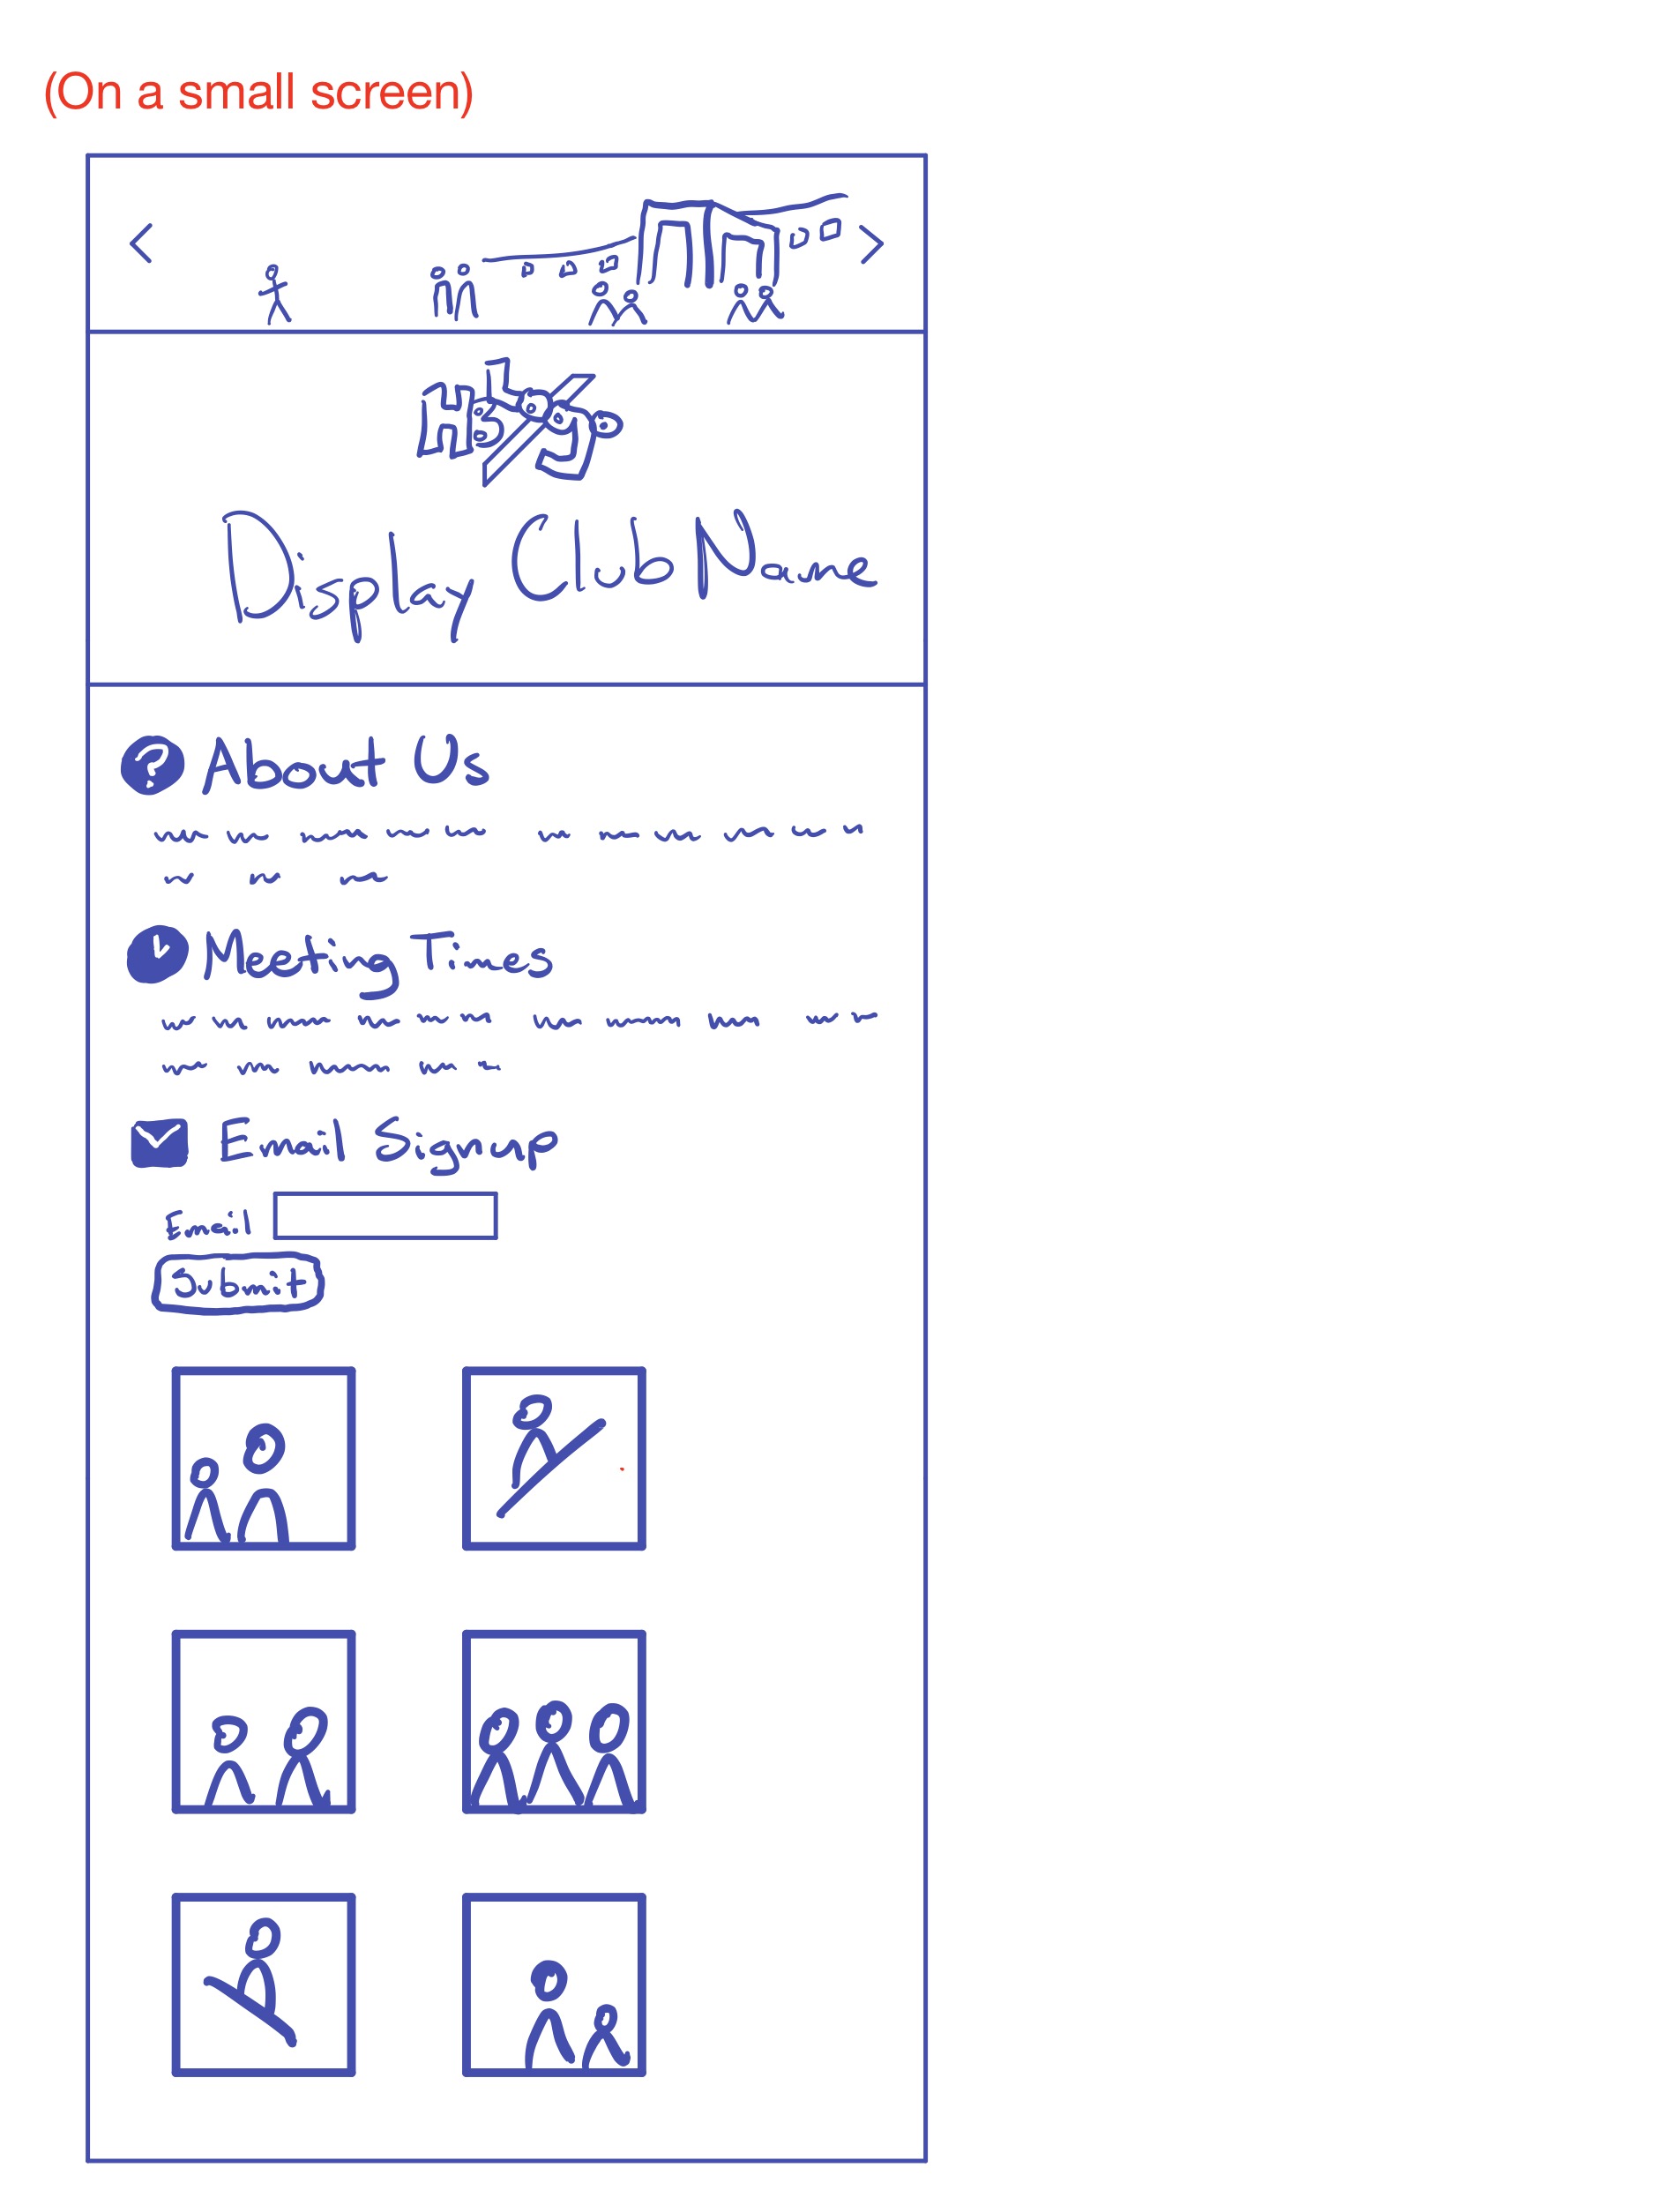 (On a small screen)
Display Club Name
About Us
Meeting Times
Email Signup
Email
Submit